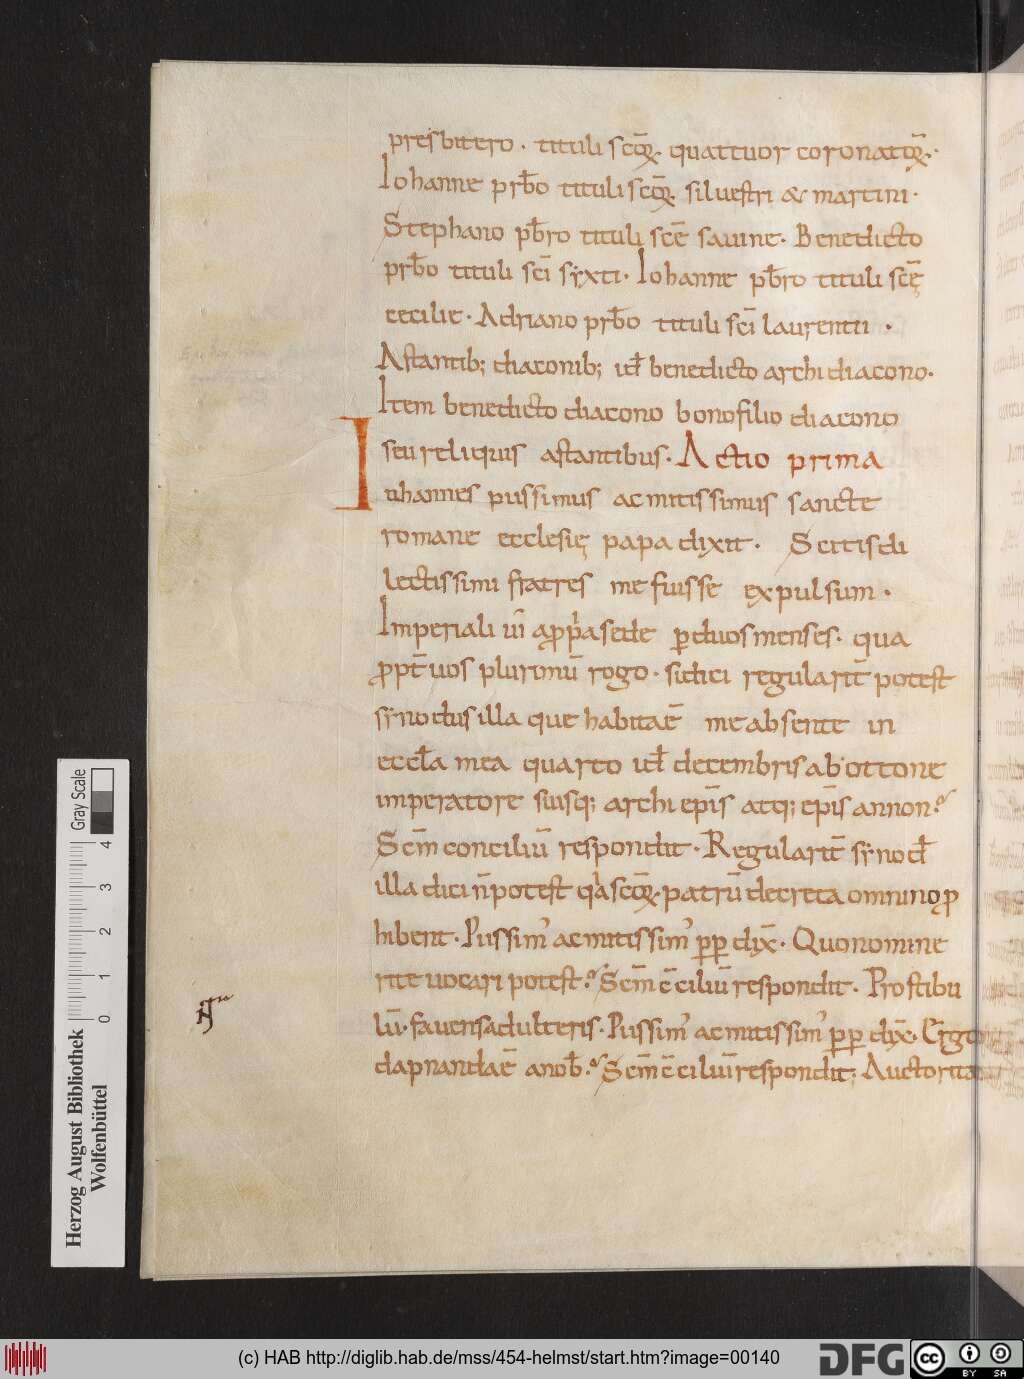 presbitero · tituli scōꝝ quattuor coronatoꝝ ·
Iohanne prƀo tituli scōꝝ silvestri & martini ·
Stephano pƀro tituli scē savine · Benedicto
prƀo tituli scī syxti · Iohanne pƀro tituli scę̄
cecilie · Adriano prƀo tituli scī laurentii ·
Astantib; diaconib; id̄ benedicto archidiacono ·
Item benedicto diacono bonofilio diacono
seu reliquis astantibus · Actio prima
Iohannes piissimus ac mitissimus sancte
romane ecclesię papa dixit · Scitis di
lectissimi fratres me fuisse expulsum ·
Imperiali vi a ꝓp̄a sede ꝑ duos menses · qua
ꝓpt̄ vos plurimū rogo · si dici regularit̄ potest
synodus illa que habita ē me absente in
eccl̄a mea quarto id̄ decembris ab ottone
imperatore suisq; archiep̄is atq; ep̄is an non ·
Scm̄ conciliū respondit · Regularit̄ synod̄
illa dici n̄ potest q̇a scōꝝ patrū decreta omnino ꝓ
hibent · Piissim' ac mitissim' ꝑꝑ dix̄ · Quo nomine
rite vocari potest · Scm̄ c̄ciliū respondit · Prostibu
lū · favens adulteris · Piissim' ac mitissim' ꝑꝑ dix̄ · Ergo
dapnanda ē a nob̄ · Scm̄ c̄ciliū respondit; Auctorita
Herzog August Bibliothek
Wolfenbüttel
0 1 2 3 4
Gray Scale
(c) HAB http://diglib.hab.de/mss/454-helmst/start.htm?image=00140
DFG
cc BY SA